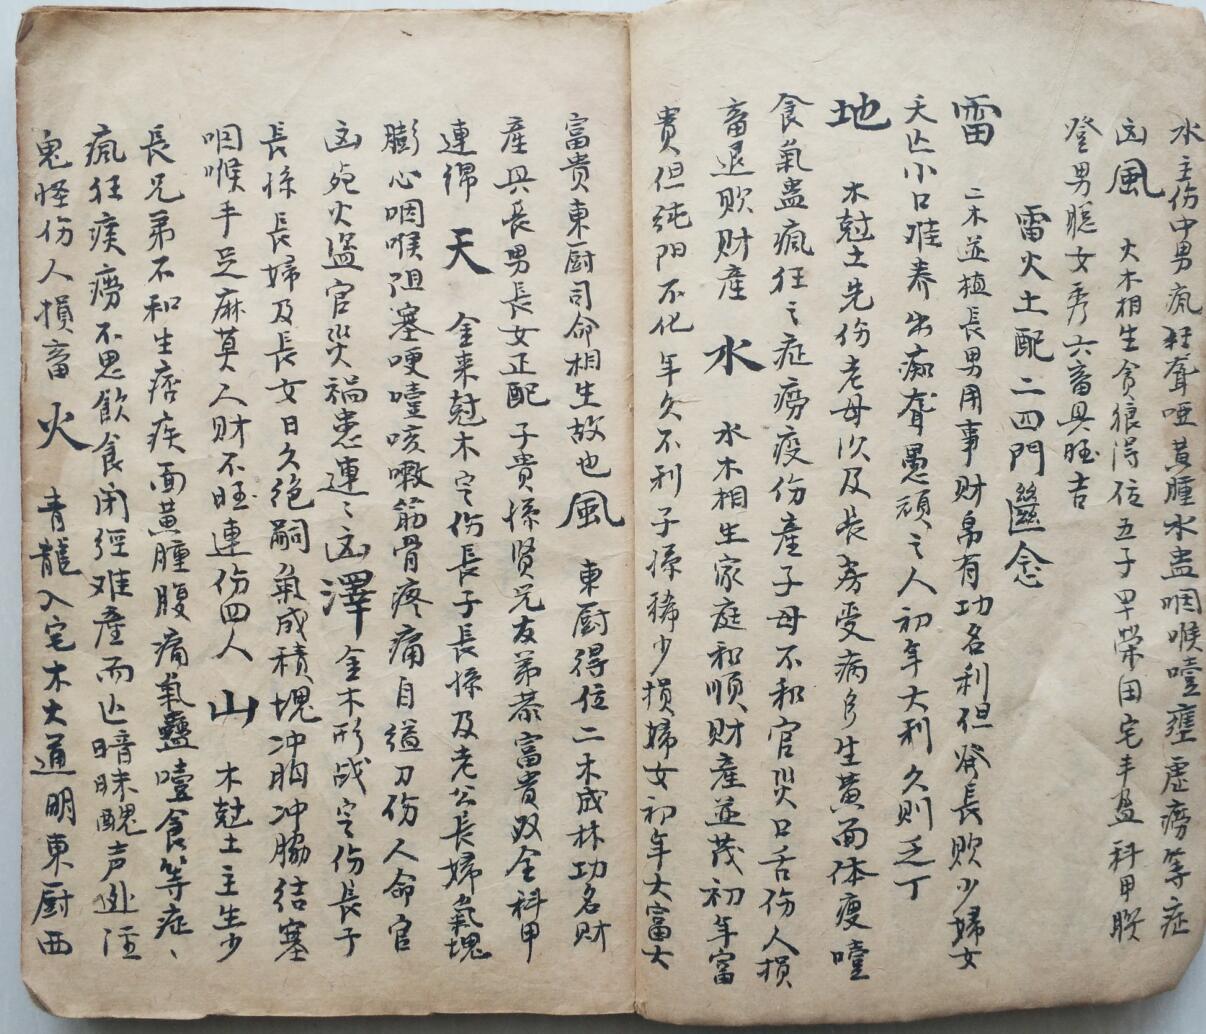 水主伤中男疯狂聋哑黄腫水蛊咽喉噎壅虚痨等症
凶風 火木相生贪狼得位五子早榮田宅丰盈科甲联
登男聪女秀六畜興旺吉
雷火土配二四門
雷 二木並植長男用事财帛有功名利但發長败少婦女
夭亡小口难养出痴聋愚頑之人初年大利久则乏丁
地 木尅土先伤老母次及長房受病多生黄面体瘦噎
食氣蛊疯狂之症痨疫伤產子母不和官災口舌伤人损
畜退败财產 水 水木相生家庭和順财產並茂初年富
貴但纯阳不化年久不利子孫稀少损婦女初年大富大
富贵東厨司命相生故也風 東厨得位二木成林功名财
產興長男長女正配子貴孫贤兄友弟恭富貴双全科甲
連绵 天 金来尅木定伤長子長孫及老公長婦氣塊
膨心咽喉阻塞哽噎咳嗽筋骨疼痛自缢刀伤人命官
凶 火盗官災禍患連〻凶澤 金木形战定伤長子
長孫長婦及長女日久绝嗣氣成積塊冲胸冲脇结塞
咽喉手足麻莫人财不旺連伤四人 山 木尅土主生少
長兄弟不和生痞疾面黄腫腹痛氣蠱噎食等症、
疯狂痰痨不思飲食闭经难產而亡暗昧醜声邪淫
鬼怪伤人损畜 火 青龍入宅木火通明東厨西